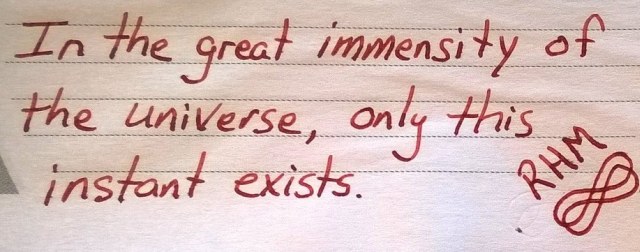 In the great immensity of
the universe, only this
instant exists.
RHM